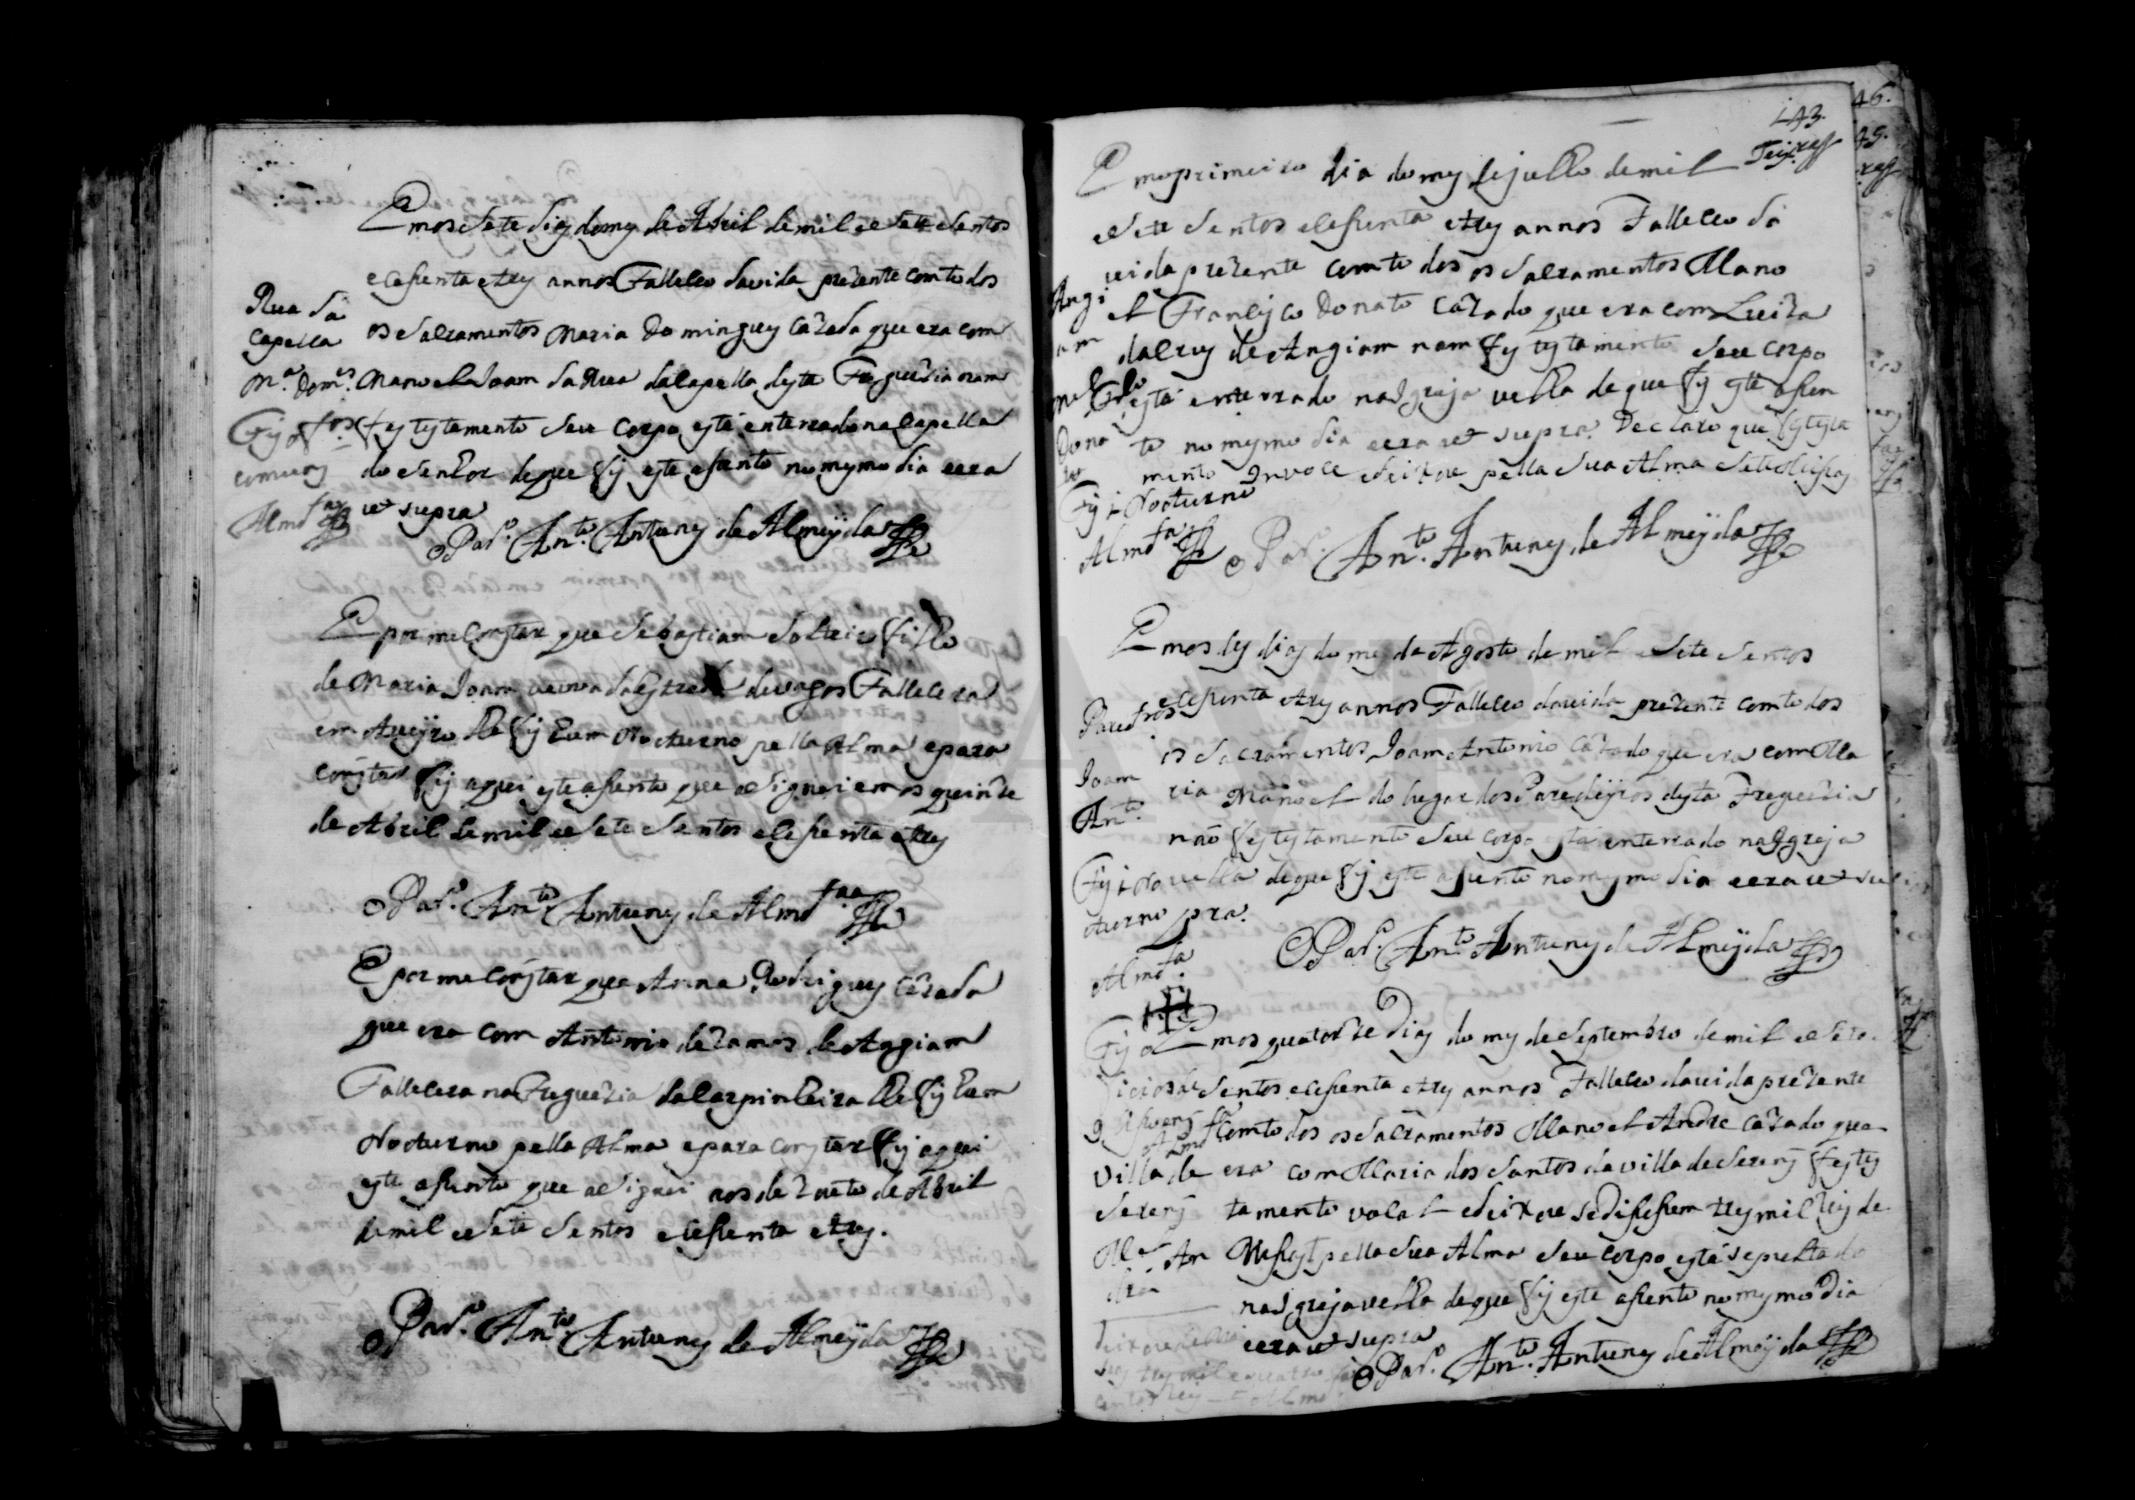 Emos Sete dias do mes de Abril de mil e Sete Sentos
e cesenta e tres annos Falleceo da vida prezente com todos
os Sacramentos Maria Domingues Cazada que era com
Manoel Joam da Rua da Capella desta Freguezia nam
fes testamento Seu Corpo está enterrado na Capella
do Senhor de que fis este asento no mesmo dia e era
ut supra
O Pad.e An.to Antunes de Almeyda
Rua da
Capella
M.a Dom.es
Almd.a
E por me Constar que Sebastiam Solteiro filho
de Maria Joam veuva da de vagos Fallecera
em Aveyro lhe fis hum Nocturno pella Alma e para
Constar fis aqui este asento que asignei em os quinze
de Abril de mil e Sete Sentos e cesenta e tres
O Pad.e An.to Antunes de Almd.a
E por me Constar que Anna Rodrigues Cazada
que era com Antonio de Ramos de Angiam
Fallecera na Freguezia da Carpinteira lhe fis hum
Nocturno pella Alma e para constar fis aqui
este asento que asignei aos dezoito de Abril
de mil e Sete Sentos e cesenta e tres.
O Pad.e An.to Antunes de Almeyda
143.
Em o primeiro dia do mes de julho de mil
e Sete Sentos e cesenta e tres annos Falleceo da
vida prezente com todos os Sacramentos Mano
el Francisco Donato Cazado que era com Luiza
da Crus de Angiam nam fes testamento Seu Corpo
está enterrado na Igreja velha de que fis este asen
to no mesmo dia e era ut supra. Declaro que fes testa
mento In voce e deixou pella Sua Alma Sete Misas
O Pad.e An.to Antunes de Almeyda
Angi
am
Dona
to
Fis 1 Nocturno
Almd.a
Emos seis dias do mes de Agosto de mil e Sete Sentos
e cesenta e tres annos Falleceo da vida prezente com todos
os Sacramentos Joam Antonio Cazado que era com Ma
ria Manoel do lugar dos Paredeyros desta Freguezia
naõ fes testamento Seu corpo está enterrado na Igreja
velha de que fis este asento no mesmo dia e era ut su
pra.
O Pad.e An.to Antunes de Almeyda
Pared.ros
Joam
An.to
Fis 1 No
cturno
Almd.a
Emos quatorze Dias do mes de Septembro de mil e Sete
Sentos e cesenta e tres annos Falleceo da vida prezente
Com todos os Sacramentos Manoel Andre Cazado que
era com Maria dos Santos da villa de Serem fes tes
tamento val e deixou se disesem tres mil reis de
Misas pella Sua Alma Seu Corpo está sepultado
na Igreja velha de que fis este asento no mesmo Dia
e era ut supra
O Pad.e An.to Antunes de Almeyda
villa de
Serem
M.el An
dre